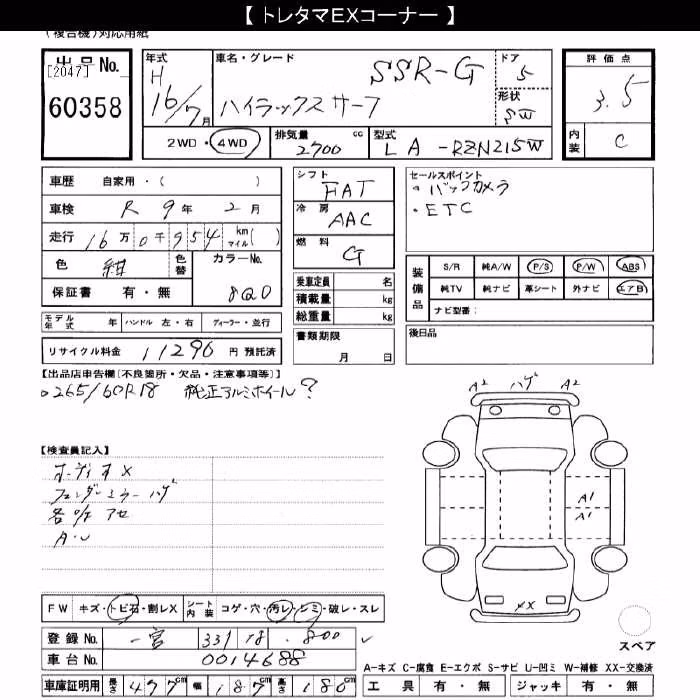 【 トレタマEXコーナー 】
(複合機)対応用紙
出品 No.
[2047]
60358
年式 H 16/7月
車名・グレード SSR-G
ハイラックスサーフ
ドア 5
形状 SW
2WD・4WD
排気量 2700 cc
型式 LA-RZN215W
評価点 3.5
内装 C
車歴 自家用・( )
車検 R 9年 2月
走行 16万0千954 km マイル( )
色 紺 色替
カラーNo. 8Q0
保証書 有・無
シフト FAT
冷房 AAC
燃料 G
乗車定員 名
積載量 kg
総重量 kg
セールスポイント
・バックカメラ
・ETC
装備品
S/R 純A/W P/S P/W ABS
純TV 純ナビ 革シート 外ナビ エアB
ナビ型番:
モデル年式 年 ハンドル 左・右 ディーラー・並行
リサイクル料金 11290 円 預託済
書類期限 月 日
後日品
【出品店申告欄(不良箇所・欠品・注意事項等)】
○265/60R18 純正アルミホイール?
A2 ハゲ A2
【検査員記入】
オーディオX
フェンダーミラーハゲ
各所 アセ
A・U
A1
A1
X
FW キズ・トビ石・割レX シート内装 コゲ・穴・汚レ・シミ・破レ・スレ
登録 No. 一宮 331 18 .800
車台 No. 0014688
スペア
A−キズ C−腐食 E−エクボ S−サビ U−凹ミ W−補修 XX−交換済
車庫証明用 長さ 477cm 幅 187cm 高さ 180cm
工具 有・無 ジャッキ 有・無